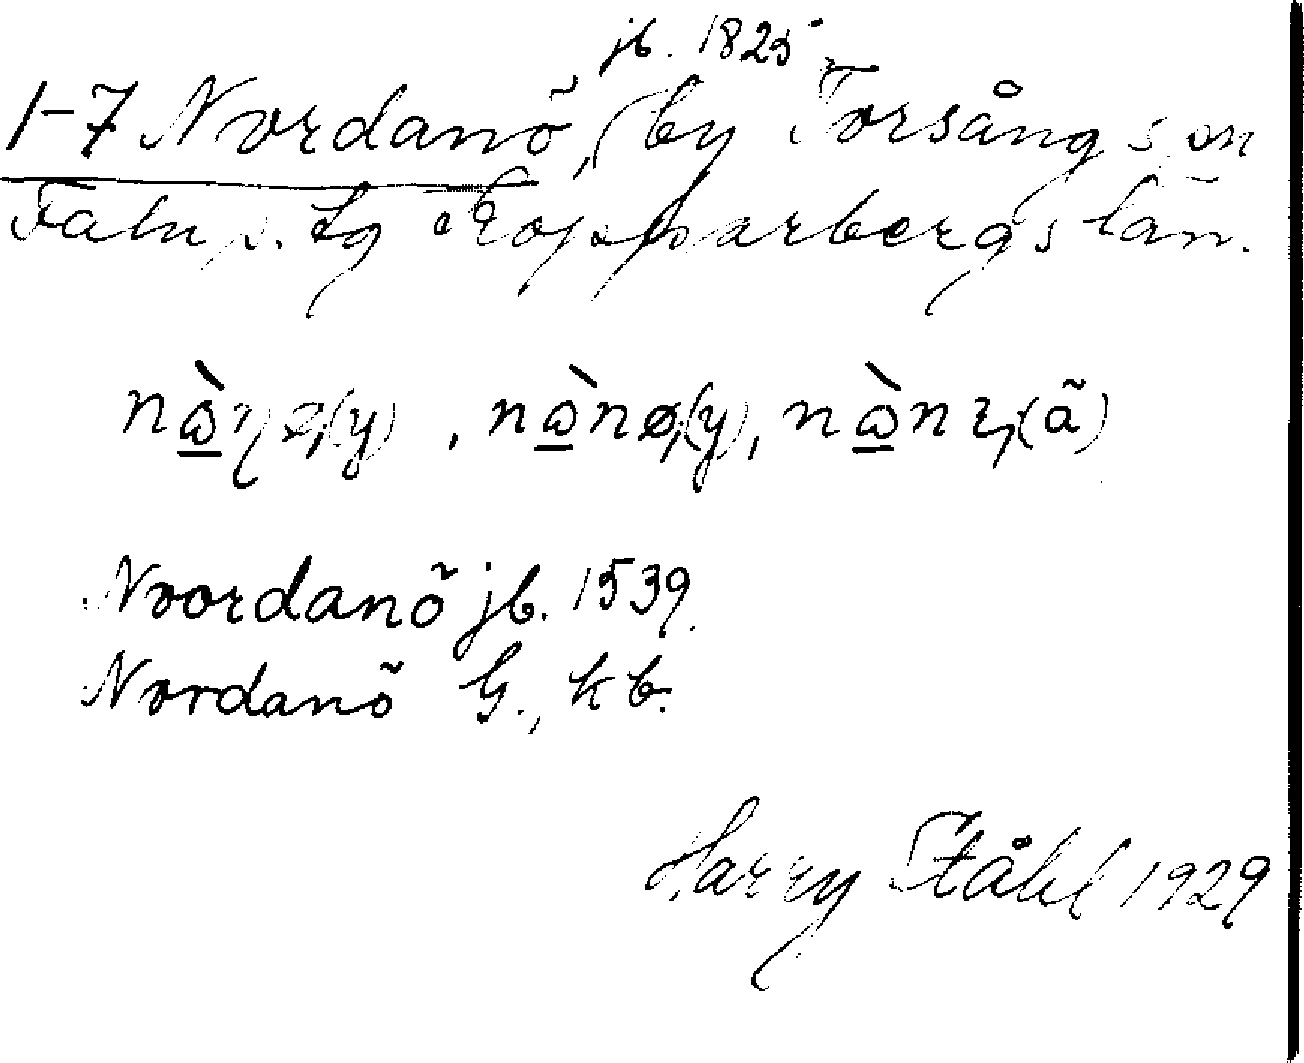 jb. 1825
1-7 Nordanö, by Torsångs sn
Falu s. tg Kopparbergs län.
Noordanö jb. 1539.
Nordanö G., kb.
Harry Ståhl 1929